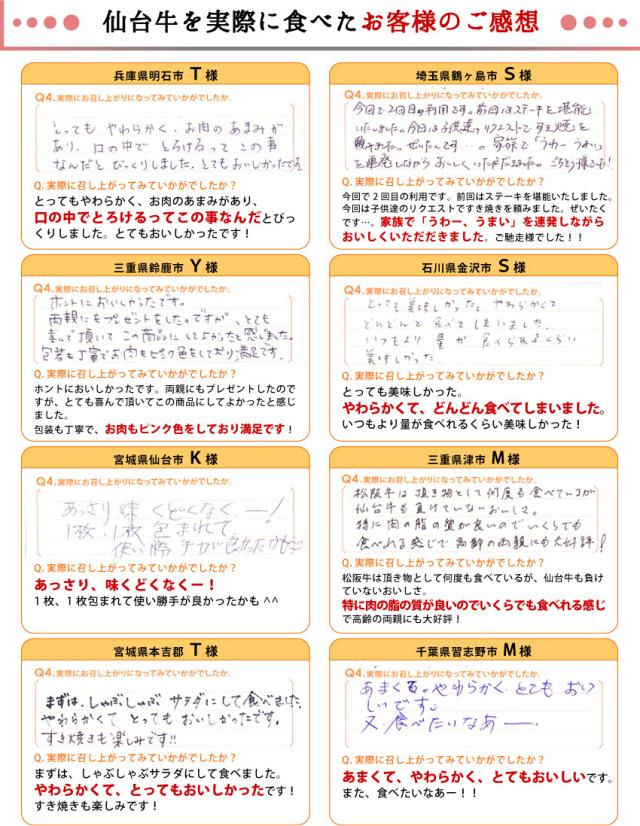 仙台牛を実際に食べたお客様のご感想
兵庫県明石市 T 様
Q4.実際にお召し上がりになってみていかがでしたか。
とっても やわらかく、お肉のあまみが
あり、口の中で とろけるって この事
なんだと びっくりしました。とてもおいしかったです。
Q. 実際に召し上がってみていかがでしたか？
とってもやわらかく、お肉のあまみがあり、
口の中でとろけるってこの事なんだとびっ
くりしました。とてもおいしかったです！
埼玉県鶴ヶ島市 S 様
Q4.実際にお召し上がりになってみていかがでしたか。
今回で2回目の利用です。前回はステーキを堪能
いたしました。今回は子供達のリクエストですき焼を
頼みました。ぜいたくです…。家族で「うわー うまい」
を連発しながらおいしくいただきました。ごちそう様でした!
Q. 実際に召し上がってみていかがでしたか？
今回で 2 回目の利用です。前回はステーキを堪能いたしました。
今回は子供達のリクエストですき焼きを頼みました。ぜいたく
です…。家族で「うわー、うまい」を連発しながら
おいしくいただだきました。ご馳走様でした！！
三重県鈴鹿市 Y 様
Q4.実際にお召し上がりになってみていかがでしたか。
ホントにおいしかったです。
両親にもプレゼントをしたのですが、とても
喜んで頂いて この商品にしてよかったと感じました。
包装も丁寧でお肉もピンク色をしており満足です。
Q. 実際に召し上がってみていかがでしたか？
ホントにおいしかったです。両親にもプレゼントしたので
すが、とても喜んで頂いてこの商品にしてよかったと感じ
ました。
包装も丁寧で、お肉もピンク色をしており満足です！
石川県金沢市 S 様
Q4.実際にお召し上がりになってみていかがでしたか。
とっても美味しかった。やわらかくて
どんどんと 食べて しまいました。
いつもより 量が 食べられるくらい
美味しかった
Q. 実際に召し上がってみていかがでしたか？
とっても美味しかった。
やわらかくて、どんどん食べてしまいました。
いつもより量が食べれるくらい美味しかった！
宮城県仙台市 K 様
Q4.実際にお召し上がりになってみていかがでしたか。
あっさり 味 くどくなく、ー！
1枚、1枚 包まれて
使い勝手が良かったかも^^
Q. 実際に召し上がってみていかがでしたか？
あっさり、味くどくなくー！
1 枚、1 枚包まれて使い勝手が良かったかも ^^
三重県津市 M 様
Q4.実際にお召し上がりになってみていかがでしたか。
松阪牛は頂き物として何度も食べているが
仙台牛も負けていないおいしさ。
特に肉の脂の質が良いのでいくらでも
食べれる感じで高齢の両親にも大好評!
Q. 実際に召し上がってみていかがでしたか？
松阪牛は頂き物として何度も食べているが、仙台牛も負け
ていないおいしさ。
特に肉の脂の質が良いのでいくらでも食べれる感じ
で高齢の両親にも大好評！
宮城県本吉郡 T 様
Q4.実際にお召し上がりになってみていかがでしたか。
まずは、しゃぶしゃぶ サラダにして食べました。
やわらかくて とっても おいしかったです。
すき焼きも楽しみです!!
Q. 実際に召し上がってみていかがでしたか？
まずは、しゃぶしゃぶサラダにして食べました。
やわらかくて、とってもおいしかったです！
すき焼きも楽しみです！
千葉県習志野市 M 様
Q4.実際にお召し上がりになってみていかがでしたか。
あまくて。やわらかく とても おい
しいです。
又、食べたいなあー。
Q. 実際に召し上がってみていかがでしたか？
あまくて、やわらかく、とてもおいしいです。
また、食べたいなあー！！